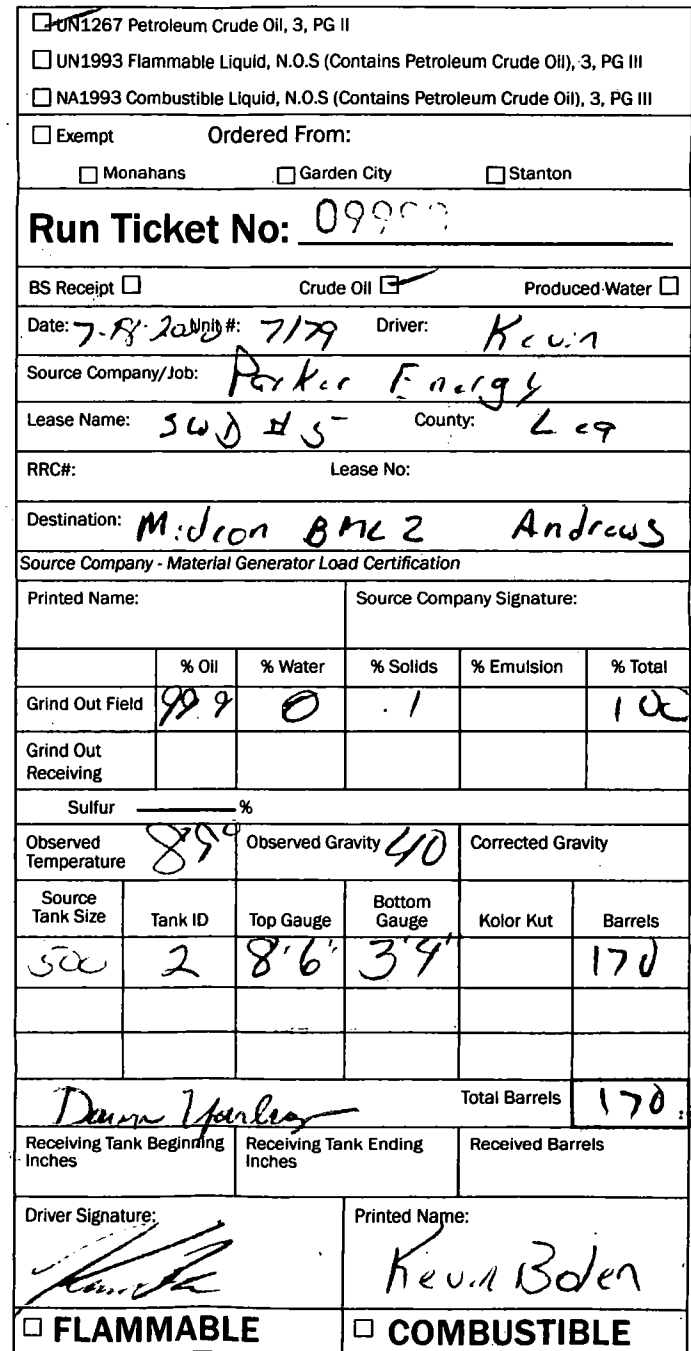 UN1267 Petroleum Crude Oil, 3, PG II
UN1993 Flammable Liquid, N.O.S (Contains Petroleum Crude Oil), 3, PG III
NA1993 Combustible Liquid, N.O.S (Contains Petroleum Crude Oil), 3, PG III
Exempt Ordered From:
Monahans Garden City Stanton
Run Ticket No:
BS Receipt Crude Oil Produced Water
Date: Unit #: 7/79 Driver: Kevin
Source Company/Job: Parker Energy
Lease Name: SWD #5 County: Lea
RRC#: Lease No:
Destination: Andrews
Source Company - Material Generator Load Certification
Printed Name: Source Company Signature:
% Oil % Water % Solids % Emulsion % Total
Grind Out Field 99.9 0 .1 100
Grind Out Receiving
Sulfur %
Observed Temperature Observed Gravity 40 Corrected Gravity
Source Tank Size Tank ID Top Gauge Bottom Gauge Kolor Kut Barrels
500 2 8'6" 170
Total Barrels 170
Receiving Tank Beginning Inches Receiving Tank Ending Inches Received Barrels
Driver Signature: Printed Name:
Kevin Boden
FLAMMABLE COMBUSTIBLE